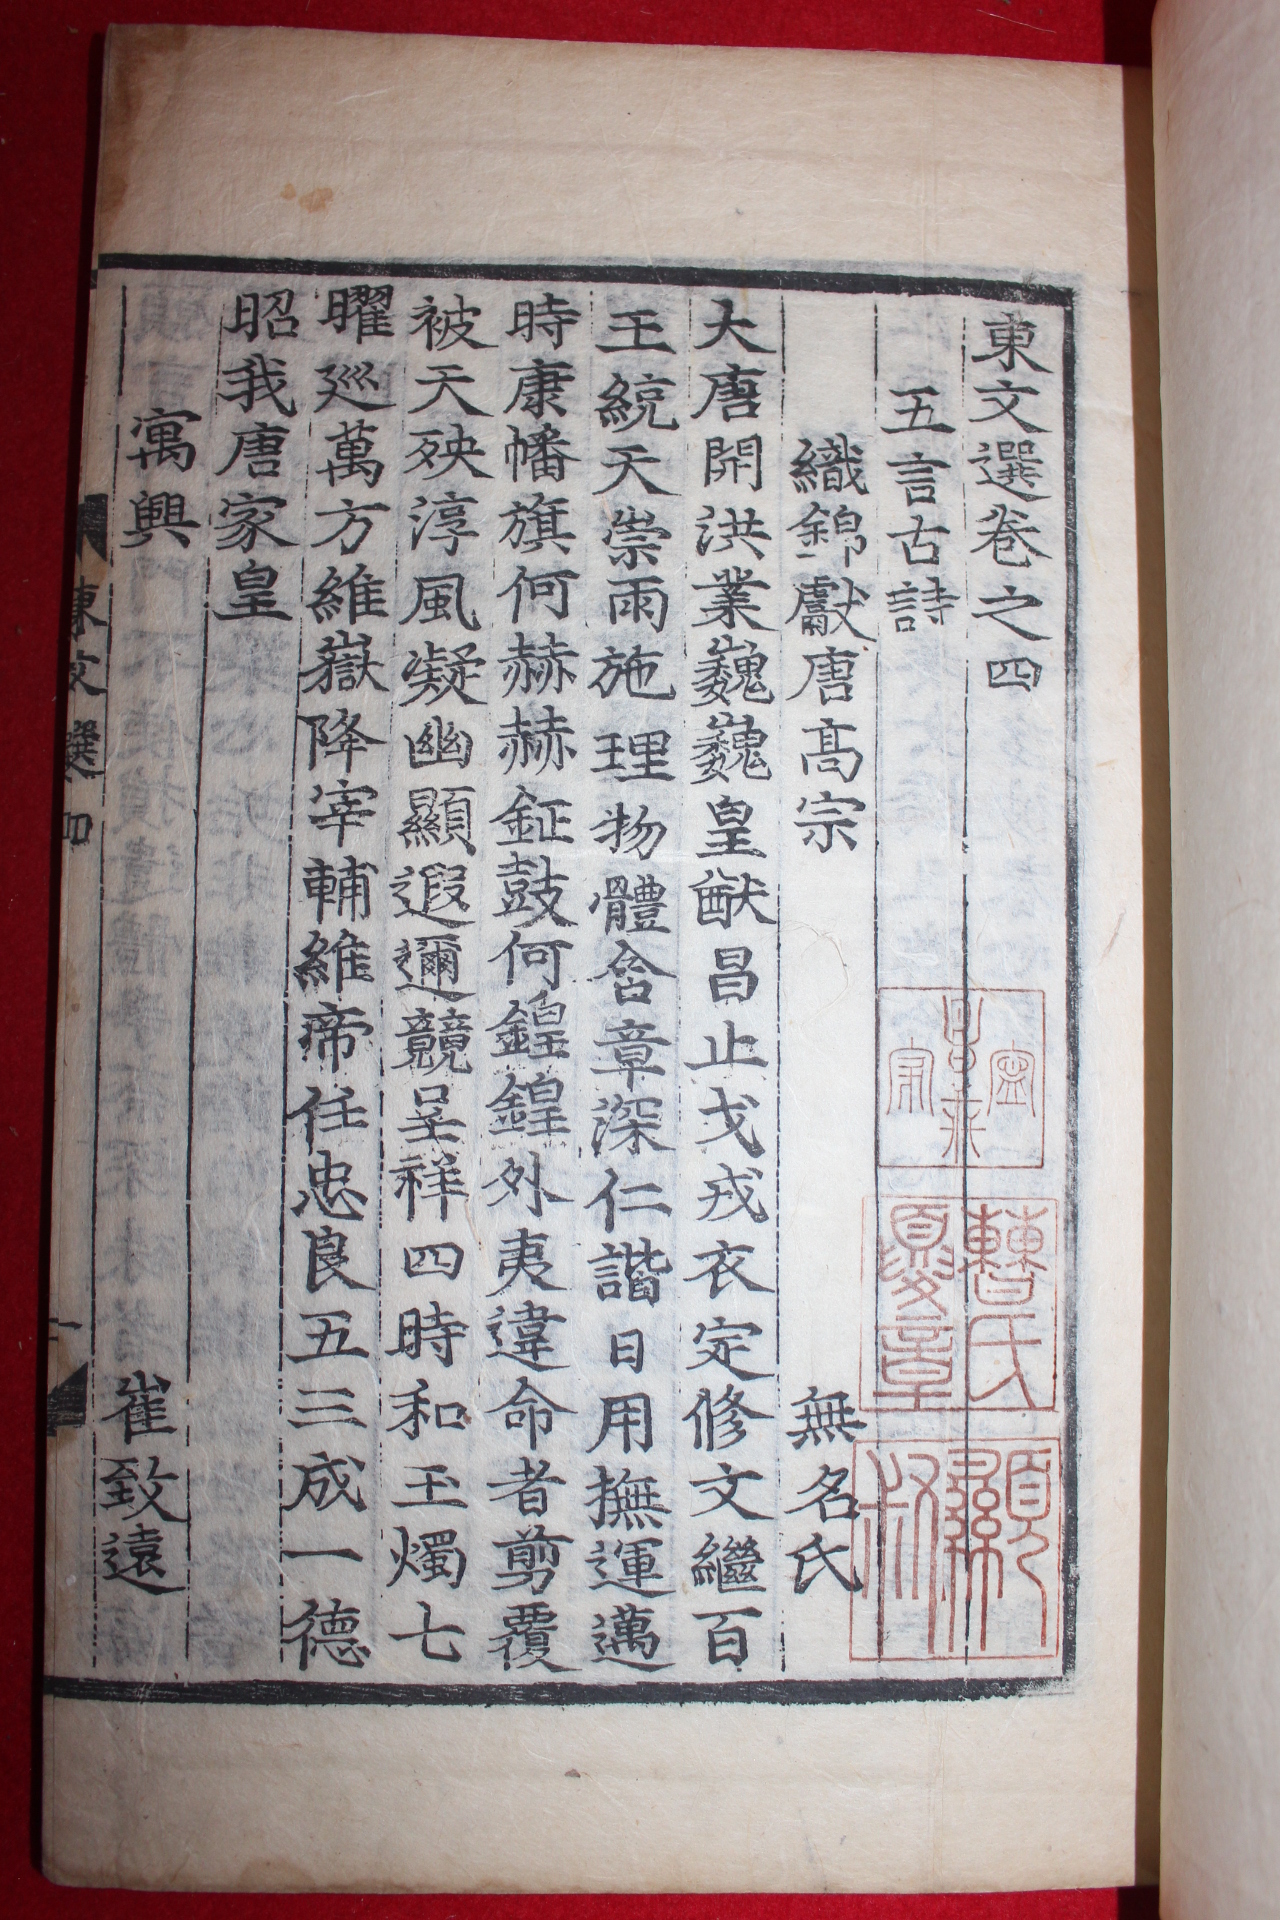 東文選卷之四
五言古詩
織錦獻唐高宗 無名氏
大唐開洪業巍巍皇猷昌止戈戎衣定修文繼百
王統天崇雨施理物體含章深仁諧日用撫運邁
時康幡旗何赫赫鉦鼓何鍠鍠外夷違命者剪覆
被天殃淳風凝幽顯遐邇競呈祥四時和玉燭七
曜巡萬方維嶽降宰輔維帝任忠良五三成一德
昭我唐家皇
寓興 崔致遠
東文選四 一